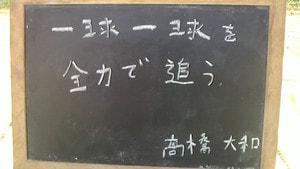 一球一球を
全力で追う。
高橋大和